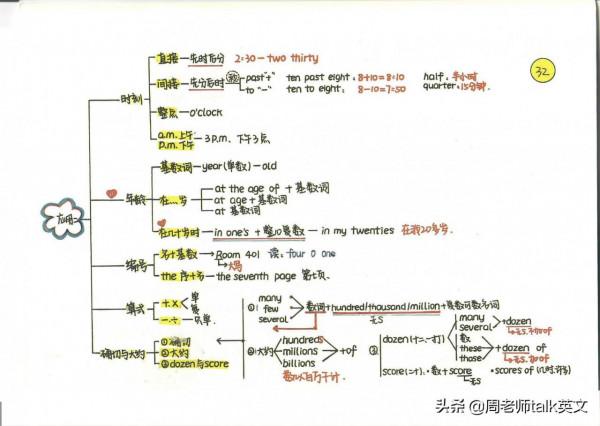 32
应用二
时刻
直接—先时后分 2:30-two thirty
间接—先分后时
past "+" ten past eight: 8+10=8:10 half: 半小时
to "-" ten to eight: 8-10=7:50 quarter: 15分钟.
整点—o'clock
a.m. 上午
p.m. 下午 — 3 p.m. 下午3点
年龄
基数词—year(单数)—old
在...岁
at the age of + 基数词
at age + 基数词
at 基数词
在几十岁时—in one's + 整10复数—in my twenties 在我20多岁.
编号
名+基数→Room 401 读: four 0 one
→大写
the 序+名—the seventh page 第七页.
算式
+.× 单 复
-.÷—只单.
确切与大约
①确切
②大约
③dozen与score
①: many few several 数词+hundred/thousand/million+复数可数名词
无s
②:大约 hundreds millions billions +of
数以百万千计.
③
dozen(十二.一打)
many several +dozen
无s.不加of
数 these those +dozen of
无s.加of
score(二十).数+score .scores of (几时.许多)
无s
头条 @周老师talk英文